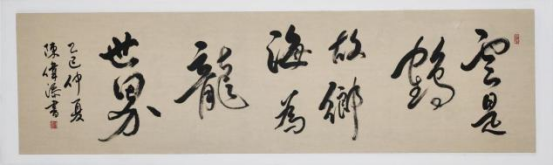 雲是
鶴
故鄉
海為
龍
世界
乙巳仲夏
陳偉書